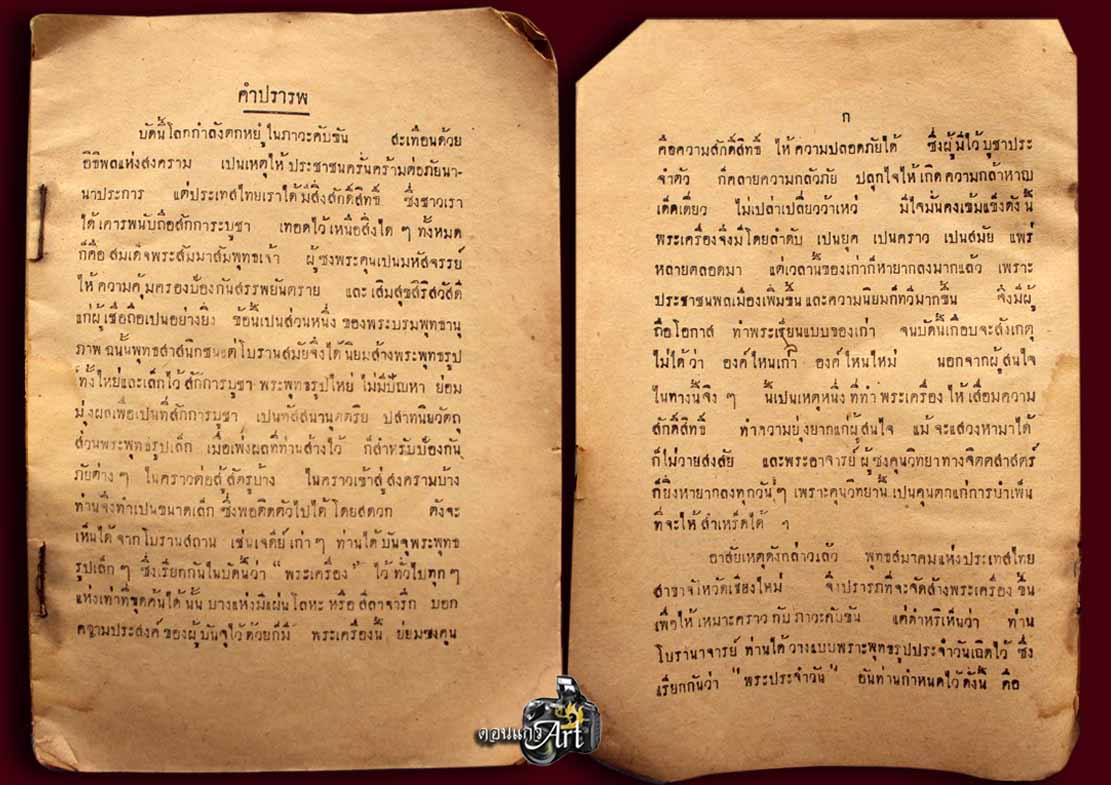 คำปรารพ
บัดนี้โลกกำลังตกหยู่ ในภาวะคับขัน สะเทือนด้วย
อิธิพลแห่งสงคราม เปนเหตุให้ ประชาชนครั่นคร้ามต่อภัยนา-
นาประการ แต่ประเทสไทยเราได้ มีสิ่งสักดิ์สิทธิ์ ซึ่งชาวเรา
ได้ เคารพนับถือสักการะบูชา เทอดไว้ เหนือสิ่งใด ๆ ทั้งหมด
ก็คือ สมเด็จพระสัมมาสัมพุทธเจ้า ผู้ซงพระคุนเปนมหัสจรรย์
ให้ ความคุ้มครองป้องกันสรรพยันตราย และ เสิมสุขสิริสวัสดี
แก่ผู้เชื่อถือเปนอย่างยิ่ง ข้อนี้เปนส่วนหนึ่ง ของพระบรมพุทธานุ
ภาพ ฉนั้นพุทธสาสนิกชนแต่โบรานสมัยจึงได้ นิยมส้างพระพุทธรูป
ทั้งใหย่และเล็กไว้ สักการบูชา พระพุทธรูปใหย่ ไม่มีปัญหา ย่อม
มุ่งผลเพื่อเปนที่สักการบูชา เปนทัสสนานุตตริย ปสาทนียวัตถุ
ส่วนพระพุทธรูปเล็ก เมื่อเพ่งผลที่ท่านส้างไว้ ก็สำหรับป้องกัน
ภัยต่าง ๆ ในคราวต่อสู้ สัตรูบ้าง ในคราวเข้าสู่ สงครามบ้าง
ท่านจึงทำเปนขนาดเล็ก ซึ่งพอติดตัวไปได้ โดยสดวก ดังจะ
เห็นได้ จากโบรานสถาน เช่นเจดีย์ เก่า ๆ ท่านได้ บันจุพระพุทธ
รูปเล็ก ๆ ซึ่งเรียกกันในบัดนี้ว่า " พระเครื่อง " ไว้ ทั่วไปทุก ๆ
แห่งเท่าที่ขุดค้นได้ นั้น บางแห่งมีแผ่น โลหะ หรือ สิลาจารึก บอก
ความประสงค์ ของผู้ บันจุไว้ ด้วยก็มี พระเครื่องนี้ ย่อมซงคุน
ก
คือความสักดิ์สิทธิ์ ให้ ความปลอดภัยได้ ซึ่งผู้ มีไว้ บูชาประ
จำตัว ก็คลายความกลัวภัย ปลุกใจให้ เกิด ความกล้าหาญ
เด็ดเดี่ยว ไม่เปล่าเปลี่ยวว้าเหว่ มีใจมั่นคงเข้มแข็งดังนี้
พระเครื่องจึงมีโดยลำดับ เปนยุค เปนคราว เปนสมัย แพร่
หลายตลอดมา แต่เวลานี้ของเก่าก็หายากลงมากแล้ว เพราะ
ประชาชนพลเมืองเพิ่มขึ้น และความนิยมก็ทวีมากขึ้น จึงมีผู้
ถือโอกาส ทำพระเรียนแบบของเก่า จนบัดนี้เกือบจะสังเกตุ
ไม่ได้ ว่า องค์ ไหนเก่า องค์ ไหนใหม่ นอกจากผู้ สนใจ
ในทางนี้จิง ๆ นี้เปนเหตุหนึ่ง ที่ทำ พระเครื่อง ให้ เสื่อมความ
สักดิ์สิทธิ์ ทำความยุ่งยากแก่ผู้ สนใจ แม้ จะแสวงหามาได้
ก็ไม่วายสงสัย และพระอาจารย์ ผู้ ซงคุนวิทยาทางจิตตสาสตร์
ก็ยิ่งหายากลงทุกวัน ๆ เพราะคุนวิทยานี้ เปนคุนตกแก่การบำเพ็น
ที่จะให้ สำเหร็ดได้ ฯ
อาสัยเหตุดังกล่าวแล้ว พุทธสมาคมแห่งประเทสไทย
สาขาจังหวัดเชียงใหม่ จึงปรารภที่จะจัดส้างพระเครื่อง ขึ้น
เพื่อให้ เหมาะคราว กับ ภาวะคับขัน แต่ดำหริเห็นว่า ท่าน
โบรานาจารย์ ท่านได้ วางแบบพราะพุทธรูปประจำวันเฉิดไว้ ซึ่ง
เรียกกันว่า " พระประจำวัน " อันท่านกำหนดไว้ ดั่งนี้ คือ
ดอนแก้ว
Art